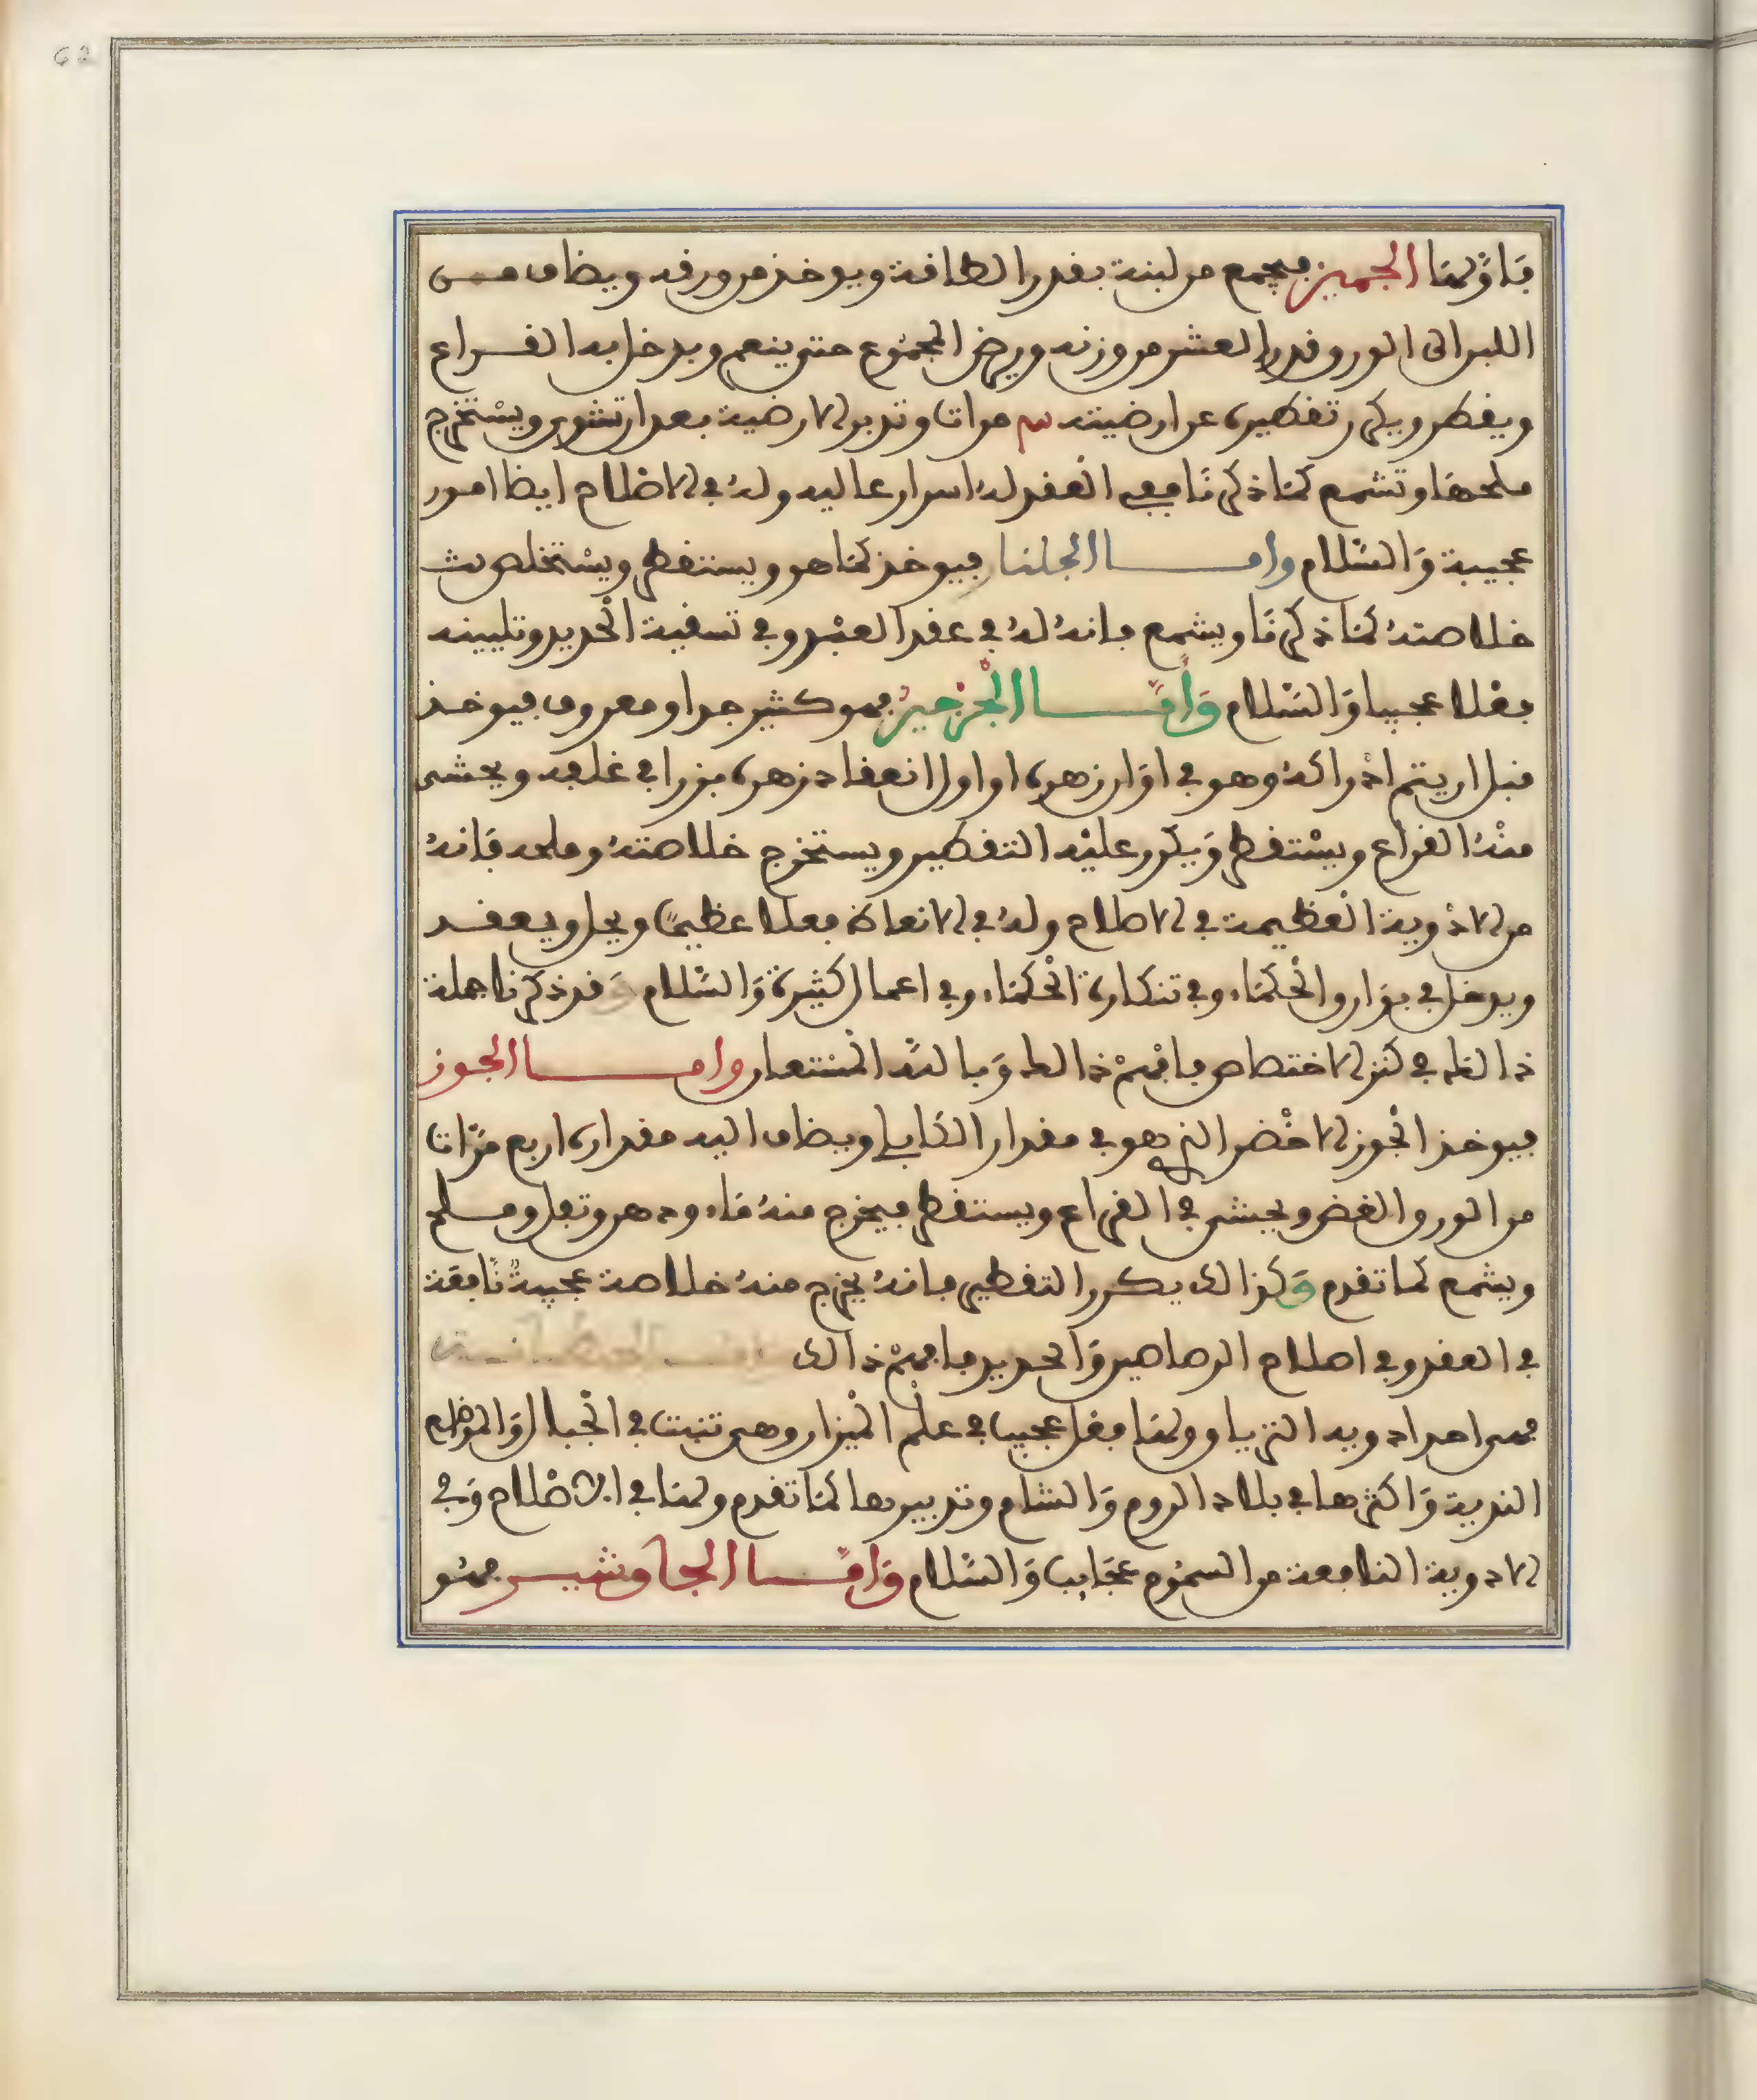 62
فاولها الجميز فيجمع من لبنه بقدر الطاقة ويوخذ من ورقه ويضاف من
اللبن الى الورق قدر العشر من وزنه ويرض المجموع حتى ينعم ويدخل به القراع
ويقطر ويكرر تقطيره عن ارضيته مرات وتدبر الارضية بعد ان تشوى ويستخرج
ملحها وتشمع كما ذكرنا ففي العقد له اسرار عاليه وله في الاصلاح ايضا امور
عجيبة والسلام واما الجلنار فيوخذ كما هو ويستقطر ويستخلص
خلاصته كما ذكرنا ويشمع فانه له في عقد العبد وفي تسقية الحديد وتليينه
فعلا عجيبا والسلام واما الجرجير فهو كثير جدا ومعروف فيوخذ
قبل ان يتم ادراكه وهو في اوان زهره او اول انعقاد زهره بزرا في غلفه ويحشى
منه القراع ويستقطر ويكرر عليه التقطير ويستخرج خلاصته وملحه فانه
من الادوية العظيمة في الاصلاح وله في الانعاظ فعلا عظيما ويحل ويعقد
ويدخل في بوارق الحكماء وفي تنكارة الحكماء وفي اعمال كثيرة والسلام وقد ذكرنا جملة
ذالك في كنز الاختصاص فافهم ذالك وبالله المستعان واما الجوز
فيوخذ الجوز الاخضر الذي هو في مقدار ويضاف اليه مقداره اربع مرات
من الورق الغض ويحشى في القراع ويستقطر فيخرج منه ماء ودهن وتفل وملح
ويشمع كما تقدم وكذالك يكرر التقطير فانه يخرج منه خلاصة عجيبة نافعة
في العقد وفي اصلاح الرصاصين والحديد فافهم ذالك واما الجنطيانة
فهي احد ادوية الترياق ولها فعل عجيب في علم الميزان وهي تنبت في الجبال والمواضع
الندية واكثرها في بلاد الروم والشام وتدبيرها كما تقدم ولها في الاصلاح وفي
الادوية النافعة من السموم عجايب والسلام واما الجاوشير فهو